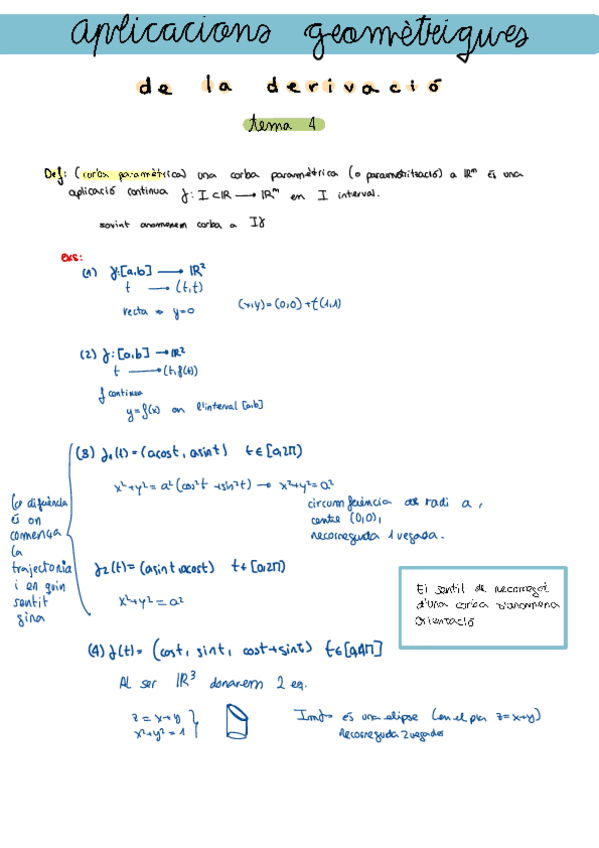 aplicacions geomètriques
de la derivació
tema 4
Def: (corba paramètrica) una corba paramètrica (o parametrització) a IRᵐ és una
aplicació continua γ: I ⊂ IR ⟶ IRᵐ en I interval.
sovint anomenem corba a Iγ
exs:
(1) γ:[a,b] ⟶ IR²
t ⟶ (t,t)
recta → y=0
(x,y)=(0,0)+t(1,1)
(2) γ: [a,b] → IR²
t ⟶ (t,f(t))
f continua
y=f(x) en l'interval [a,b]
(3) γ₁(t)=(acost, asint) t∈[0,2π)
x²+y²= a²(cos²t+sin²t) → x²+y²=a²
circumferència de radi a,
centre (0,0),
recorreguda 1 vegada.
la diferència
és on
comença
la
trajectoria
i en quin
sentit
gira
γ₂(t)=(asint, acost) t∈[0,2π)
x²+y²=a²
El sentit de recorregut
d'una corba s'anomena
orientació
(4) γ(t)= (cost, sint, cost+sint) t∈[0,4π]
Al ser IR³ donarem 2 eq.
z=x+y
x²+y²=1
Imγ és una elipse (en el pla z=x+y)
Recorreguda 2 vegades